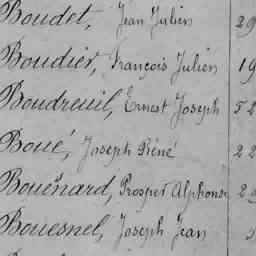 Boudet, Jean Julien 29
Boudier, François Julien 19
Boudreuil, Ernest Joseph 52
Boué, Joseph Réné 22
Bouënard, Prosper Alphonse 2
Bouesnel, Joseph Jean